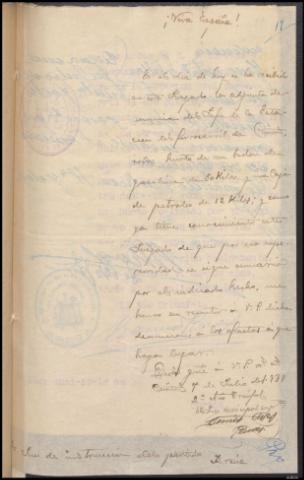 ¡Viva España!
En el día de hoy se ha recibido
en este Juzgado, la adjunta de-
nuncia del Jefe de la Esta-
ción del ferrocarril de
sobre hurto de un bidon de
gasolina de Kilos y una Caja
de petroleo de 12 Kilos; y como
ya tiene conocimiento este
Juzgado de que por esa supe-
rioridad se sigue sumario
por el indicado hecho, me
honro en remitir a V.S. dicha
denuncia a los efectos a que
haya lugar.
Dios gûe a V.S. m. a.
7 de Julio de 193
2º Año Triunfal
El Juez municipal
Juez de instrucción de este partido